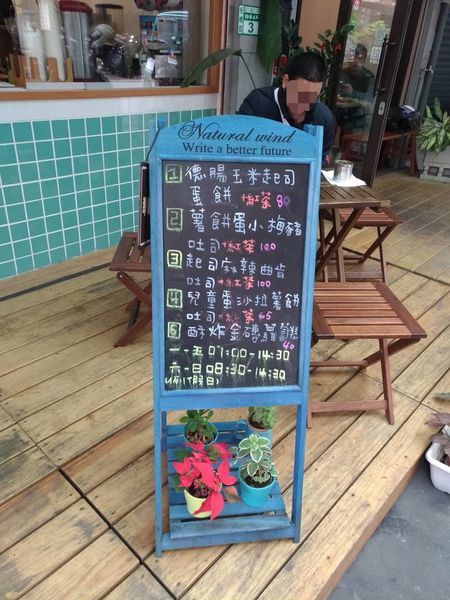 Natural wind
Write a better future
1 德腸玉米起司
蛋餅 +紅茶 80
2 薯餅蛋小梅豬
吐司+紅茶 100
3 起司麻辣曲肯
吐司+紅茶100
4 兒童蛋沙拉薯餅
吐司+紅茶 65
5 酥炸金磚蘿蔔糕
40
一-五 07:00-14:30
六-日 08:30-14:30
(例假日)
3